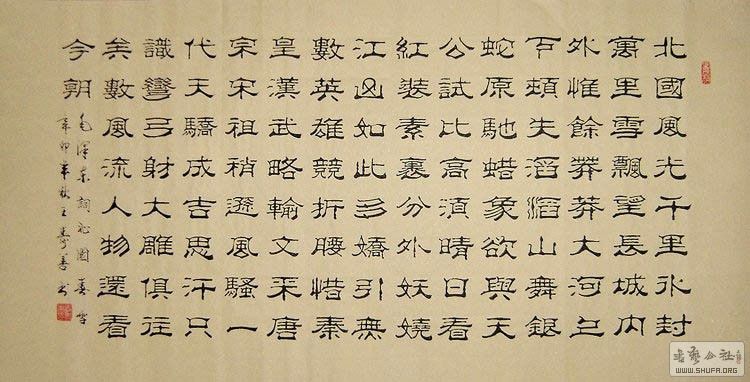 北國風光千里氷封
萬里雪飄望長城内
外惟餘莽莽大河上
下頓失滔滔山舞銀
蛇原馳蜡象欲與天
公試比高湏晴日看
紅装素裹分外妖嬈
江山如此多嬌引無
數英雄競折腰惜秦
皇漢武略輸文采唐
宗宋祖稍遜風騷一
代天驕成吉思汗只
識彎弓射大雕俱往
矣數風流人物還看
今朝
毛澤東詞沁園春雪
辛卯年秋王壽善书
书艺公社
WWW.SHUFA.ORG